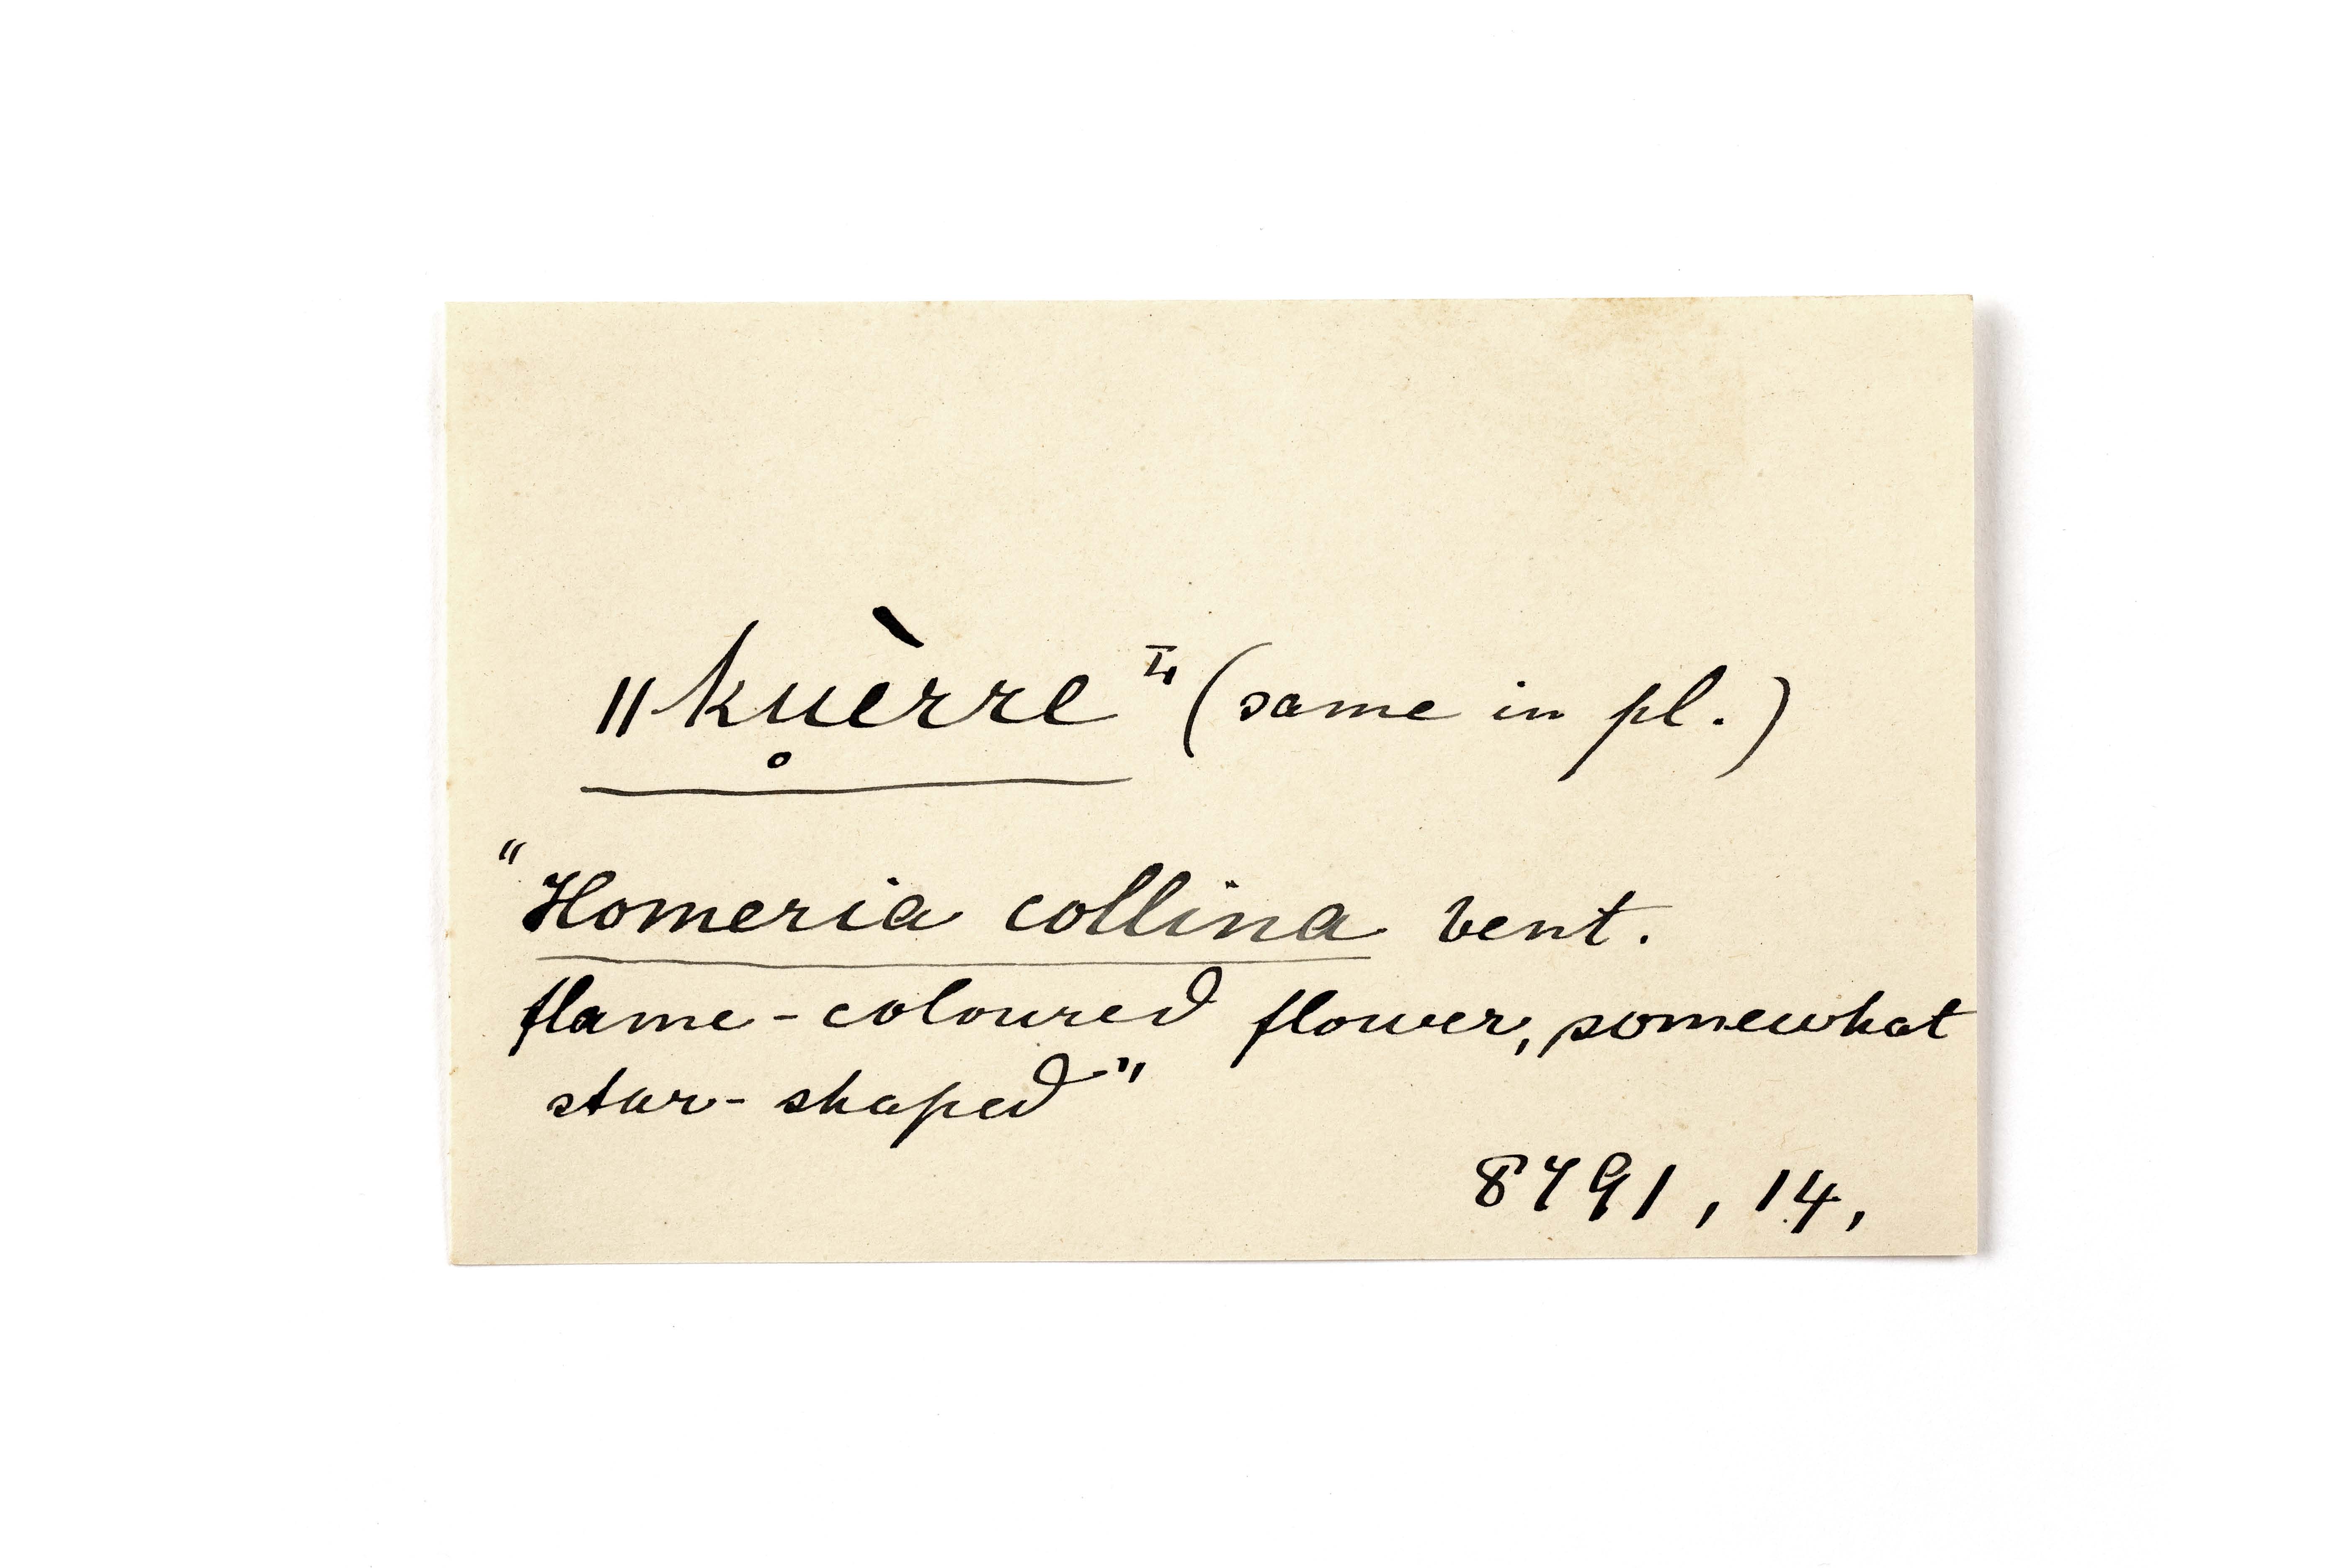 ǁku̥èrre (same in pl.)
"Homeria collina Vent.
flame-coloured flower, somewhat
star-shaped"
8791, 14,